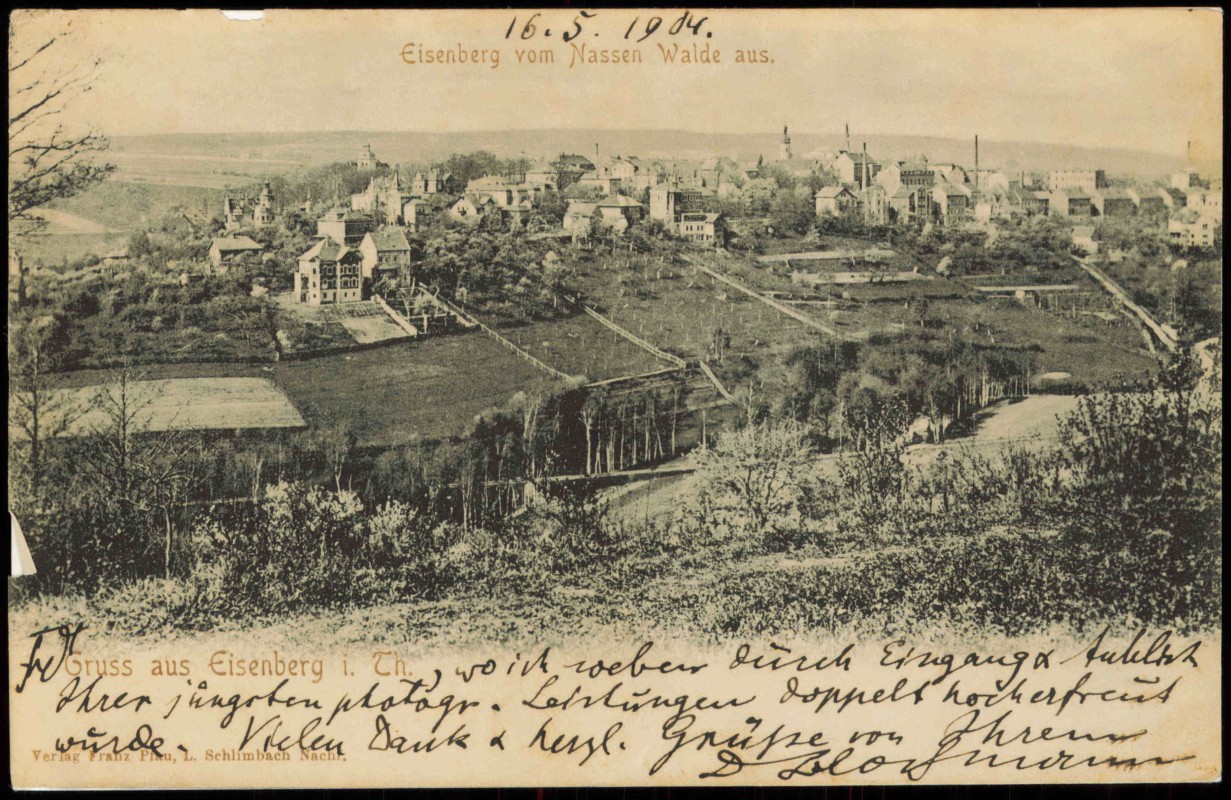 16.5. 1904.
Eisenberg vom Nassen Walde aus.
Gruss aus Eisenberg i. Th., wo ich soeben durch Eingang & Anblick
Ihrer jüngsten photogr. Leistungen doppelt hocherfreut
wurde. Vielen Dank & herzl. Grüße von Ihrem
Verlag Franz Plau, L. Schlimbach Nachf.